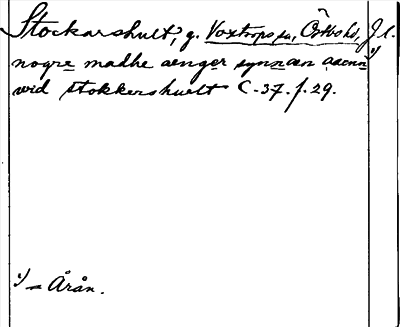 Stockarshult, g. Voxtorps sn, Östbo hd, J.l.
nogre madhe ænger synnæn aaenn ¹)
wid stokkershuelt C-37. f. 29.
¹) = Årån.